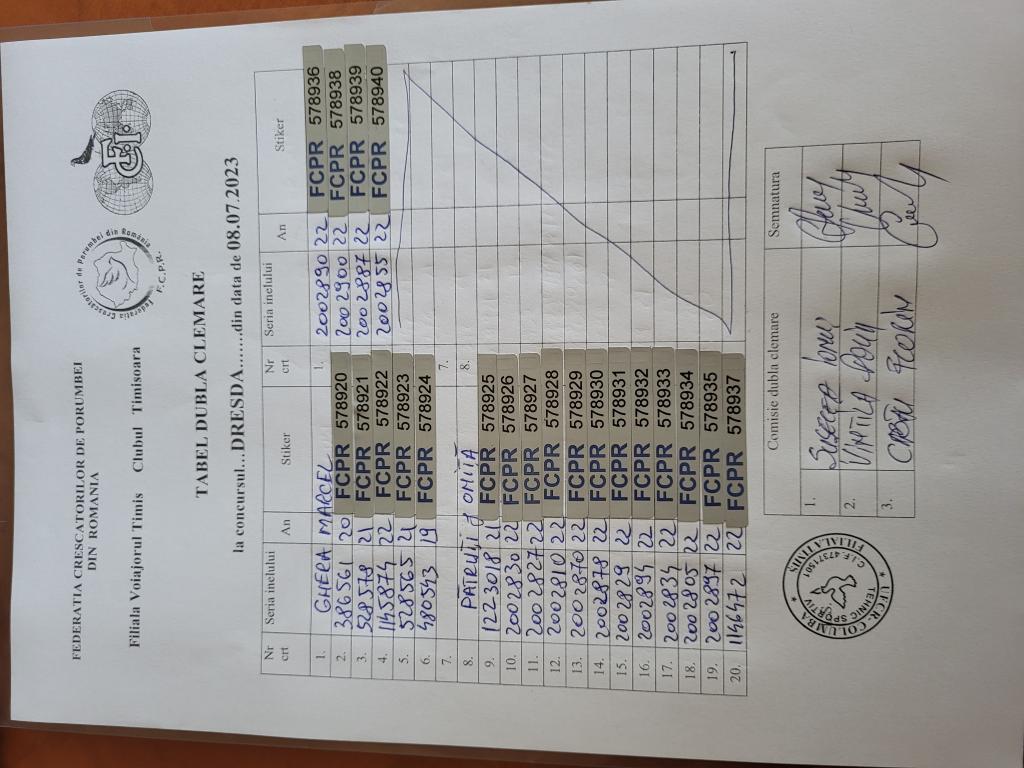 FEDERATIA CRESCATORILOR DE PORUMBEI
DIN ROMANIA
Filiala Voiajorul Timis Clubul Timisoara
Federatia Crescatorilor de Porumbei din România
F.C.P.R.
TABEL DUBLA CLEMARE
la concursul...DRESDA........din data de 08.07.2023
Nr crt Seria inelului An Stiker Nr crt Seria inelului An Stiker
1. GHERA MARCEL 1. 2002890 22 FCPR 578936
2. 386561 20 FCPR 578920 2002900 22 FCPR 578938
3. 528578 21 FCPR 578921 2002887 22 FCPR 578939
4. 1145874 22 FCPR 578922 2002855 22 FCPR 578940
5. 528565 21 FCPR 578923
6. 480543 19 FCPR 578924
7. 7.
8. PĂTRUȚI IONIȚĂ 8.
9. 1223018 21 FCPR 578925
10. 2002830 22 FCPR 578926
11. 2002827 22 FCPR 578927
12. 2002810 22 FCPR 578928
13. 2002870 22 FCPR 578929
14. 2002878 22 FCPR 578930
15. 2002829 22 FCPR 578931
16. 2002894 22 FCPR 578932
17. 2002834 22 FCPR 578933
18. 2002805 22 FCPR 578934
19. 2002897 22 FCPR 578935
20. 1146472 22 FCPR 578937
Comisie dubla clemare Semnatura
1.
2. VINTILA
3. FLORIN
U.F.C.R. COLUMBA
TEHNIC SPORTIV
C.I.F. 47371501
FILIALA TIMIȘ